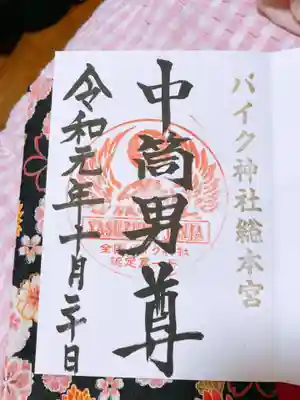 バイク神社総本宮
中筒男尊
令和元年十月二十日
YASUZUMI JINJA